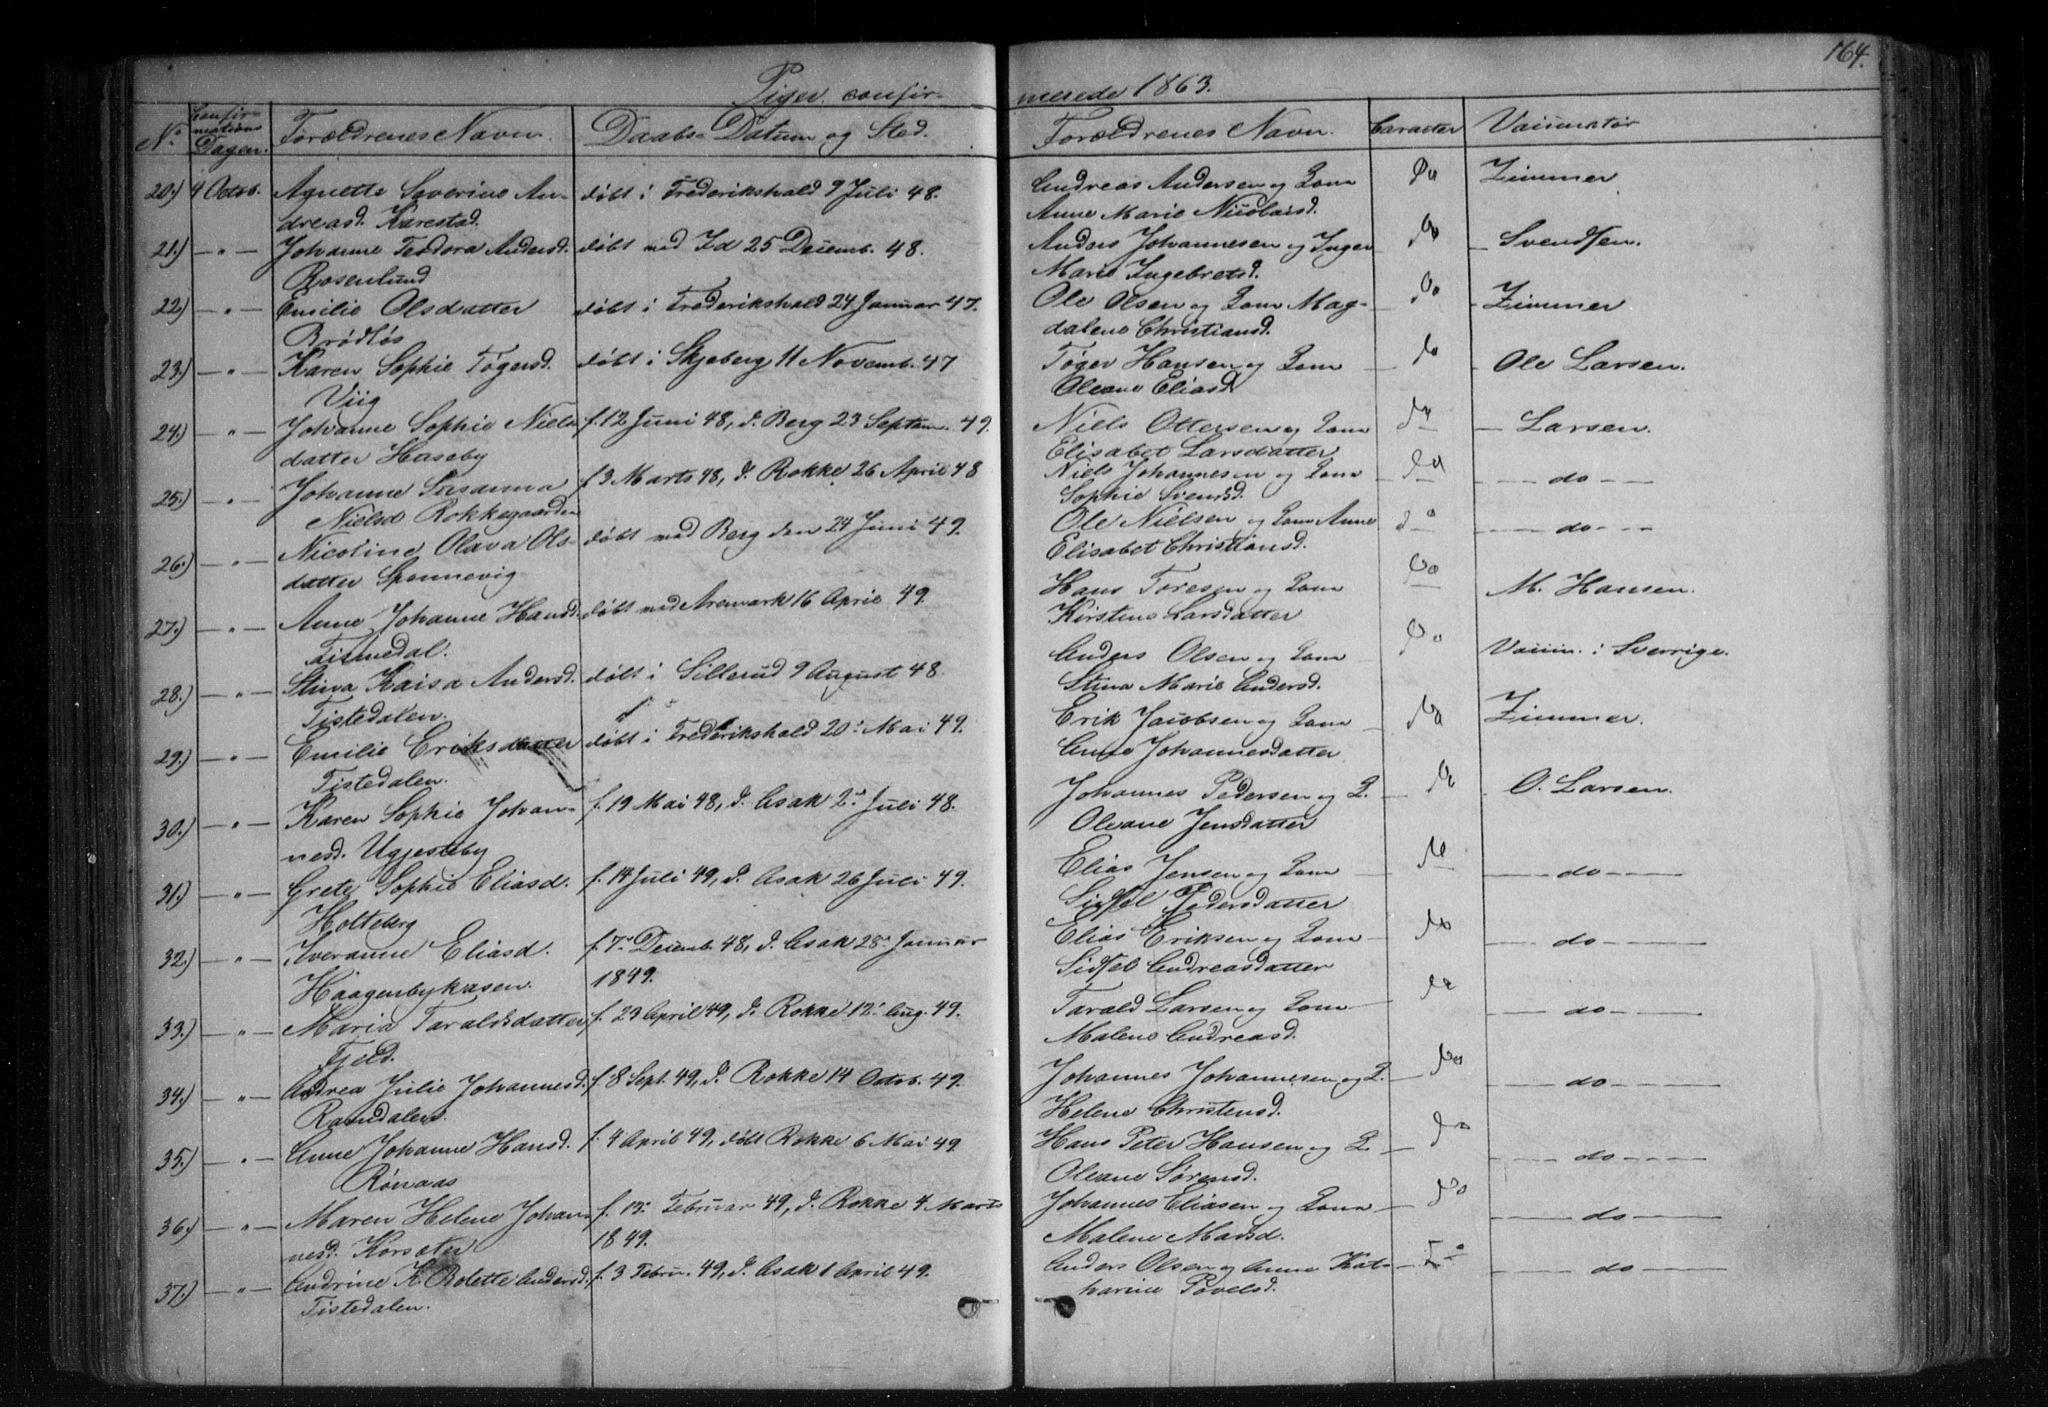 164.
Piger confirmerede 1863.
No Confirmations Dagen. Forældrenes Navn. Daabs Datum og Sted. Forældrenes Navn. Caracter Vaccinatør
20.) 4 Octob. Agnette Severine An- døbt i Frederikshald 9 Juli 48. Andreas Andersen og Kone Zimmer
dreasd. Karestad. Anne Marie Nicolaisd.
21.) — " — Johanne Teodora Andersd. døbt ved Id 25 Decemb. 48. Anders Johannesen og Inger — Svendsen.
Rosenlund Marie Ingebretsd.
22.) — " — Emilie Olsdatter døbt i Frederikshald 24 Januar 47. Ole Olsen og Kone Mag- Zimmer
Brødløs dalene Christiansd.
23.) — " — Karen Sophie Tøgersd. døbt i Skjeberg 11 Novemb. 47 Tøger Hansen og Kone Ole Larsen.
Viig Oleane Eliasd.
24.) — " — Johanne Sophie Niels f. 12 Juni 48, d. Berg 23 Septem. 49. Niels Ottersen og Kone — Larsen.
datter Haseby Elisabet Larsdatter
25.) — " — Johanne Susanna f 3 Marts 48, d. Rokke 26 April 48 Niels Johannesen og Kone — do —
Nielsd Rokkegaarden Sophie Svendsd.
26.) — " — Nicoline Olava Ols- døbt ved Berg den 24 Juni 49. Ole Nielsen og Kone Anne — do —
datter Sponnevig Elisabet Christiansd.
27.) — " — Anne Johanne Hansd. døbt ved Aremark 16 April 49. Hans Toresen og Kone M. Hansen.
Tismedal. Kirstine Larsdatter
28.) — " — Stina Kaisa Andersd. døbt i Sillerud 9 August 48. Anders Olsen og Kone Vaccin. i Sverrige.
Tistedalen. Stina Marie Andersd.
29.) — " — Emilie Eriksdatter døbt i Frederikshald 20. Mai 49. Erik Jacobsen og Kone Zimmer.
Tistedalen. Anne Johannesdatter
30.) — " — Karen Sophie Johan- f. 19 Mai 48, d. Asak 2. Juli 48. Johannes Pedersen og K. O. Larsen.
nesd. Ugjesteby Oleane Jensdatter
31.) — " — Grete Sophie Eliasd. f. 14 Juli 49, d. Asak 26 Juli 49. Elias Jensen og Kone — do —
Holteberg Sidsel Pedersdatter
32.) — " — Iveranne Eliasd. f. 7. Decemb. 48, d. Asak 28. Januar Elias Eriksen og Kone — do —
Haagenbykasen. 1849. Sidsel Andreasdatter
33.) — " — Maria Taraldsdatter f. 23 April 49, d. Rokke 12. Aug. 49. Tarald Larsen og Kone — do —
Fjeld. Malene Andreasd.
34.) — " — Andrea Julie Johannesd. f. 8 Sept. 49, d. Rokke 14 Octob. 49. Johannes Johannesen og K. — do —
Ramdalen. Helene Christensd.
35.) — " — Anne Johanne Hansd. f. 4 April 49, døbt Rokke 6 Mai 49. Hans Peter Hansen og K. — do —
Rønaas Oleane Sørensd.
36.) — " — Maren Helene Johan f. 13. Februar 49, d. Rokke 4 Marts Johannes Eliasen og Kone — do —
nesd. Korsæter 1849. Malene Madsd.
37.) — " — Andrine K. Rolette Andersd. f. 3 Febru. 49, d. Asak 1 April 49. Anders Olsen og Anne Kat- — do —
Tistedalen. harine Povelsd.